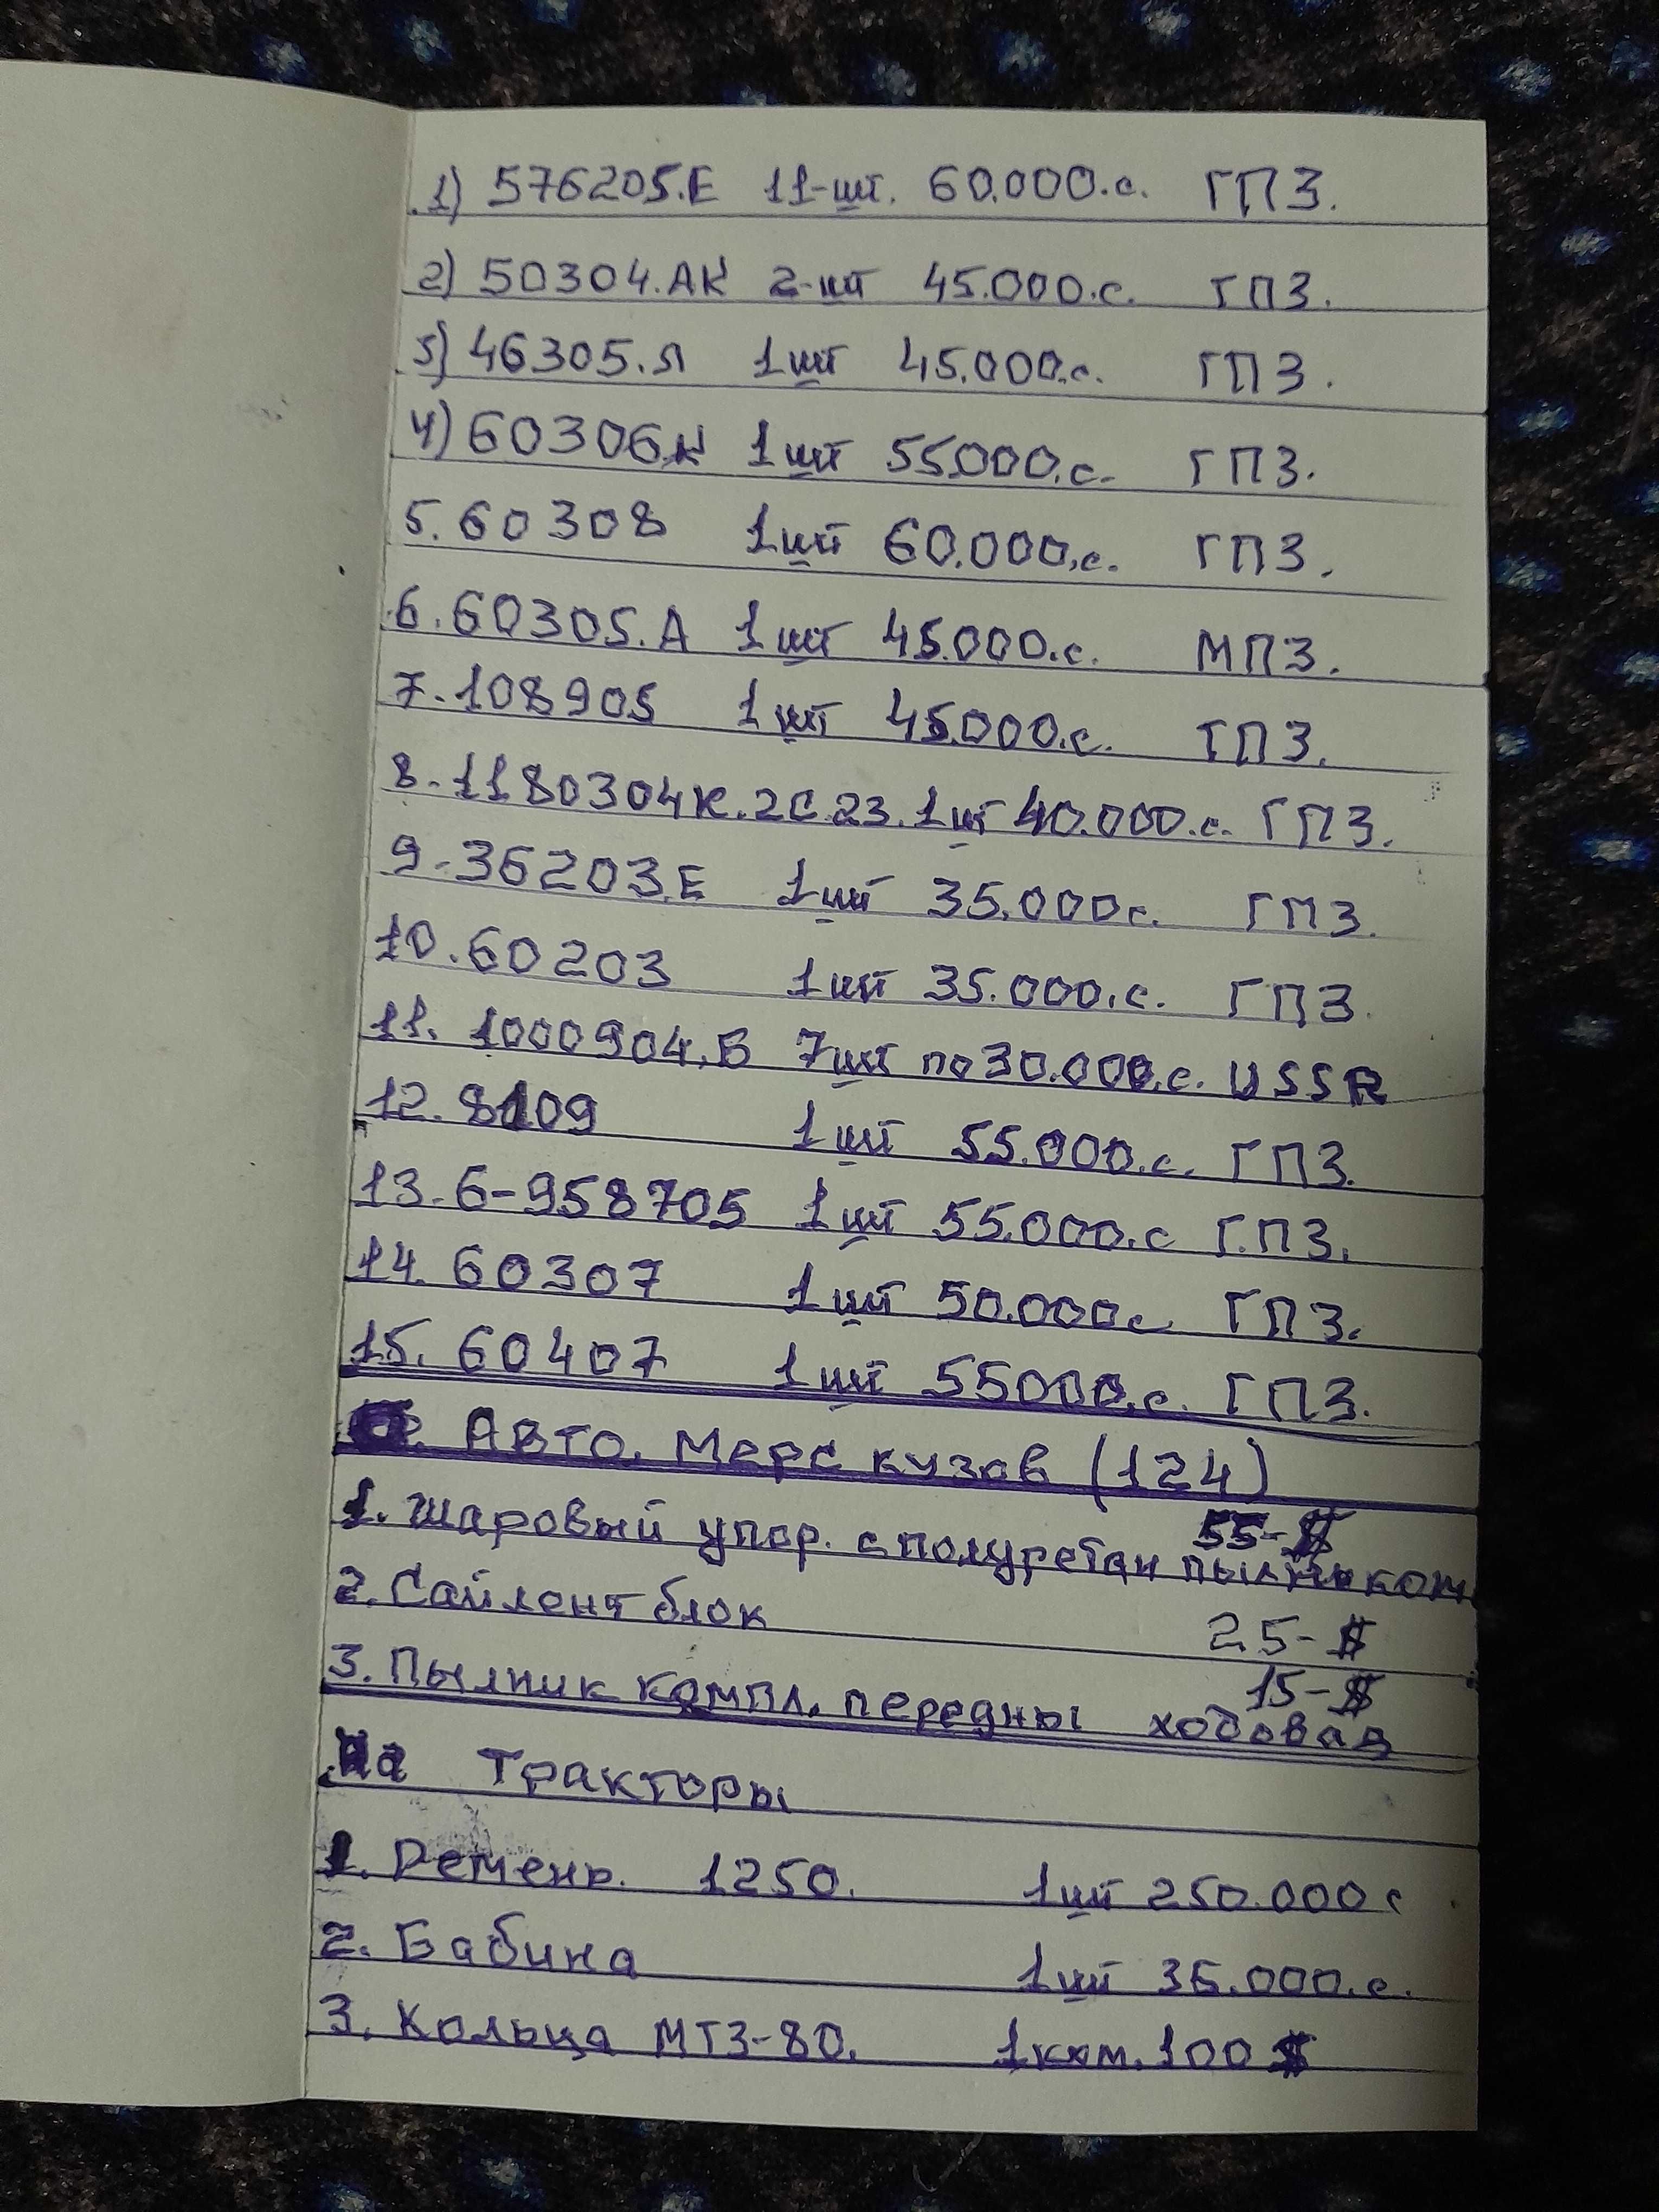 1) 576205.Е 11-шт. 60.000.с. ГПЗ.
2) 50304.АК 2-шт 45.000.с. ГПЗ.
3) 46305.Л 1шт 45.000.с. ГПЗ.
4) 60306К 1шт 55000.с. ГПЗ.
5. 60308 1шт 60.000.с. ГПЗ.
6. 60305.А 1шт 45.000.с. МПЗ.
7. 108905 1шт 45.000.с. ГПЗ.
8. 1180304К.2С.23. 1шт 40.000.с. ГПЗ.
9. 36203.Е 1шт 35.000с. ГПЗ.
10. 60203 1шт 35.000.с. ГПЗ.
11. 1000904.Б 7шт по 30.000.с. USSR
12. 8109 1шт 55.000.с. ГПЗ.
13. 6-958705 1шт 55.000.с Г.ПЗ.
14. 60307 1шт 50.000с ГПЗ.
15. 60407 1шт 55000.с. ГПЗ.
Авто. Мерс кузов (124)
1. шаровый упор. с полуретан пыльником 55-$
2. Сайлент блок 25-$
3. Пылник компл. передны ходовая 15-$
На Тракторы
1. Ремень. 1250. 1шт 250.000с
2. Бабина 1шт 35.000.с.
3. Кольца МТЗ-80. 1ком. 100$